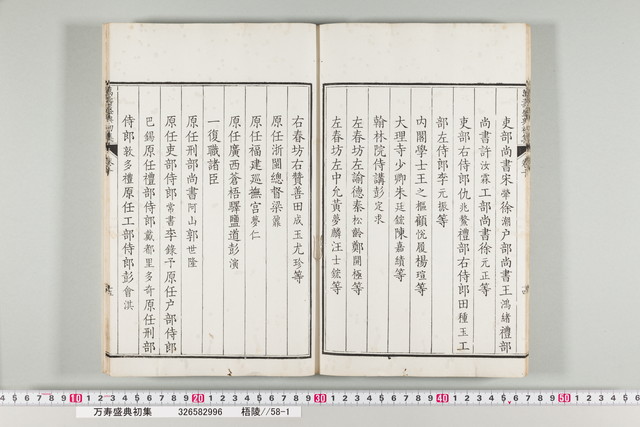 吏部尚書宋犖徐潮户部尚書王鴻緒禮部
尚書許汝霖工部尚書徐元正等
吏部右侍郎仇兆鰲禮部右侍郎田種玉工
部左侍郎李元振等
内閣學士王之樞顧悦履楊瑄等
大理寺少卿朱廷鋐陳嘉績等
翰林院侍講彭定求
左春坊左諭德秦松齡鄭開極等
左春坊左中允黄夢麟汪士鋐等
右春坊右贊善田成玉尤珍等
原任浙閩總督梁鼐
原任福建巡撫宫夢仁
原任廣西蒼梧驛鹽道彭演
一復職諸臣
原任刑部尚書阿山郭世隆
原任吏部侍郎常書李錄予原任户部侍郎
巴錫原任禮部侍郎戴都里多奇原任刑部
侍郎敦多禮原任工部侍郎彭會淇
10 20 30 40 50
万寿盛典初集 326582996 梧陵//58-1